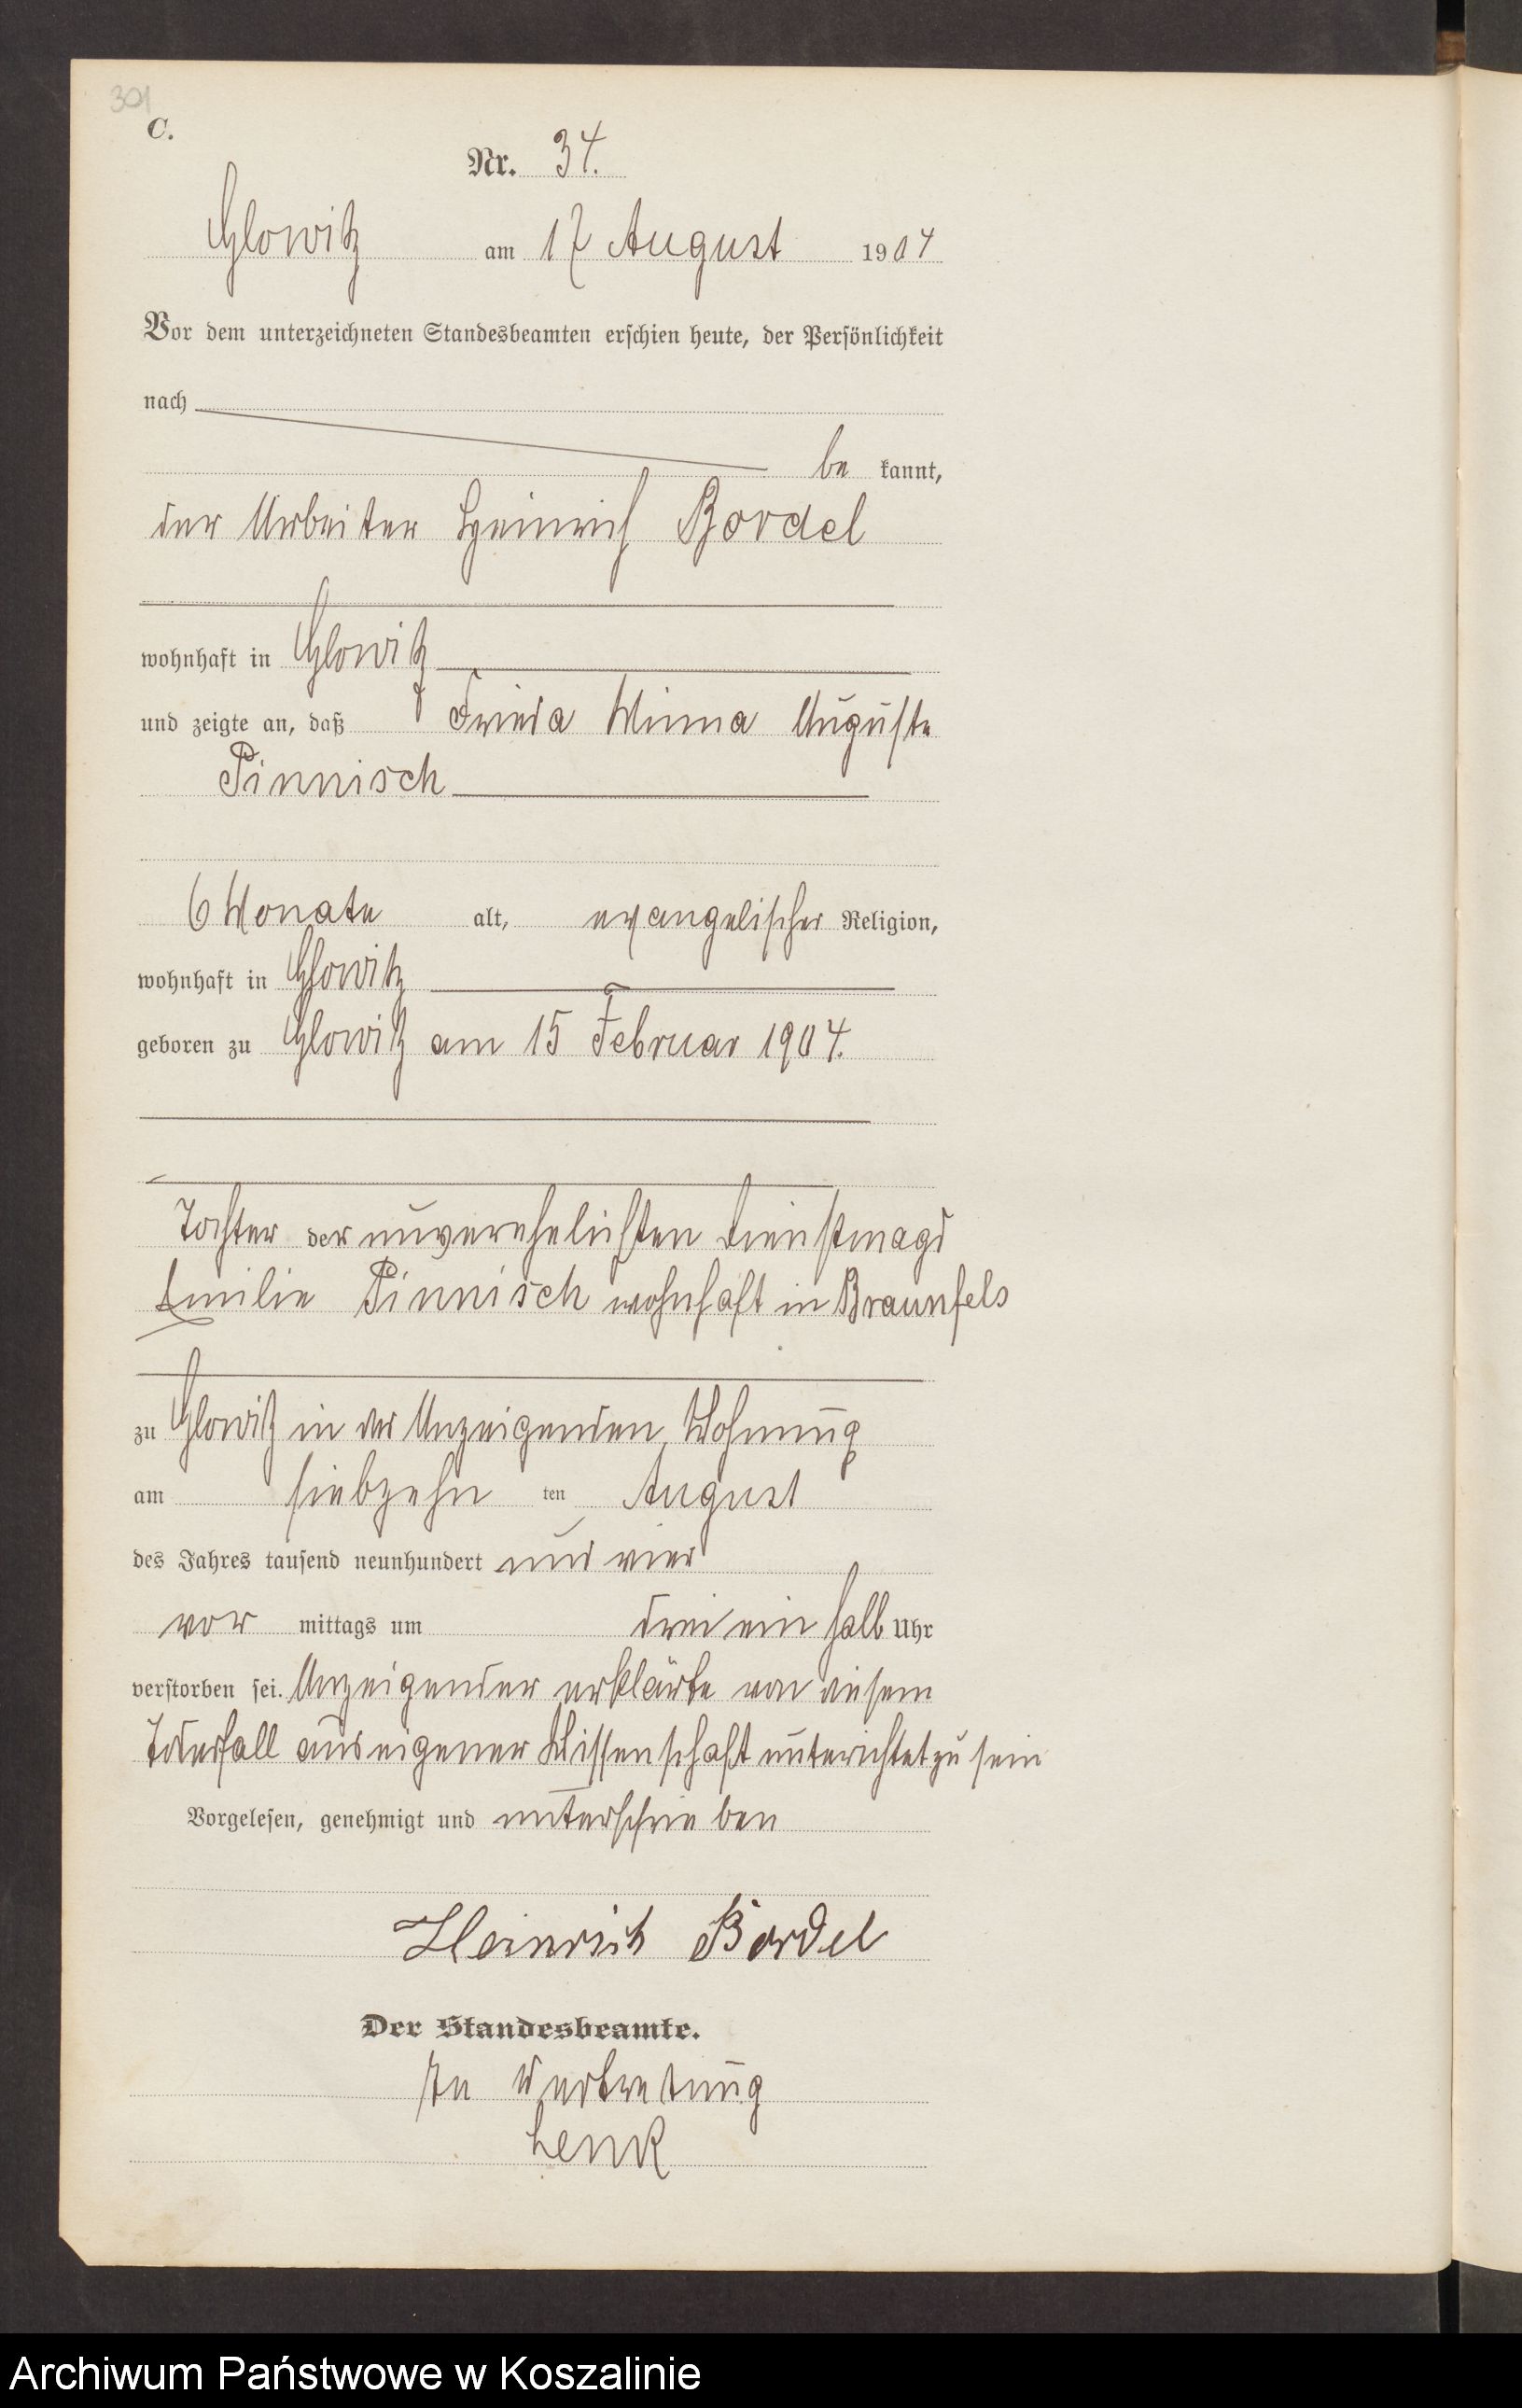 301
C.
Nr. 34.
Glowitz am 17 August 1904
Vor dem unterzeichneten Standesbeamten erschien heute, der Persönlichkeit
nach
be kannt,
der Arbeiter Heinrich Bordel
wohnhaft in Glowitz
und zeigte an, daß Frieda Minna Auguste
Pinnisch
6 Monate alt, evangelischer Religion,
wohnhaft in Glowitz
geboren zu Glowitz am 15 Februar 1904.
Tochter der unverehelichten Dienstmagd
Emilie Pinnisch wohnhaft in Braunfels
zu Glowitz in der Anzeigenden Wohnung
am siebzehn ten August
des Jahres tausend neunhundert und vier
vor mittags um drei ein halb Uhr
verstorben sei. Anzeigender erklärte von diesem
aus eigener Wissenschaft unterichtet zu sein
Vorgelesen, genehmigt und unterschrieben
Heinrich Bordel
Der Standesbeamte.
In Vertretung
Lenk
Archiwum Państwowe w Koszalinie